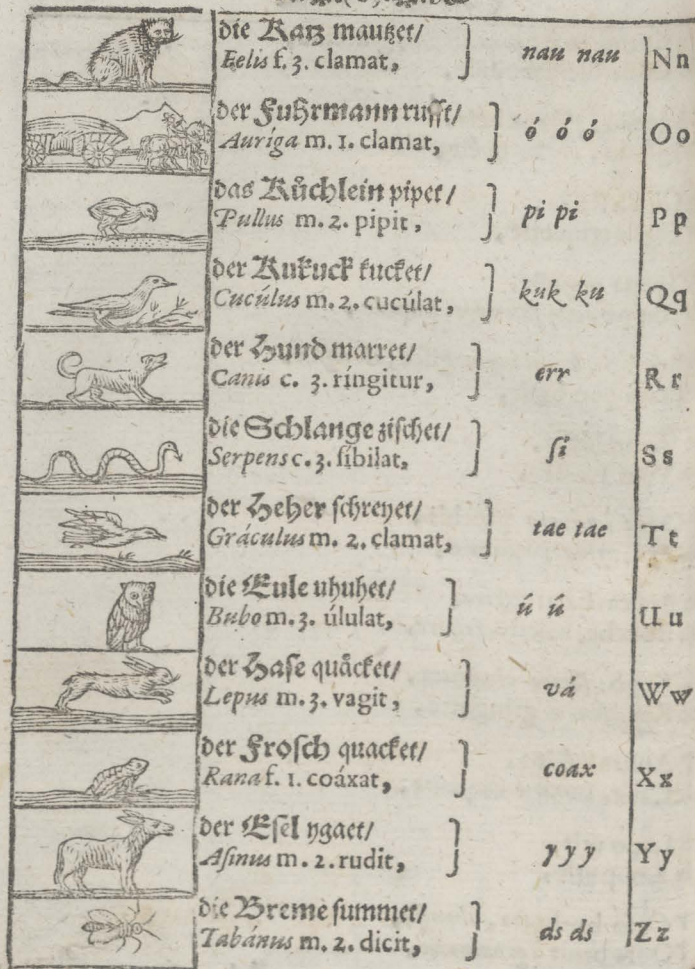 die Katz mautzet/
Felis f. 3. clamat, } nau nau Nn
der Fuhrmann rufft/
Auríga m. 1. clamat, } ó ó ó Oo
das Kůchlein pipet/
Pullus m. 2. pipit, } pi pi Pp
der Kukuck kucket/
Cucúlus m. 2. cucúlat, } kuk ku Qq
der Hund marret/
Canis c. 3. ríngitur, } err Rr
die Schlange zischet/
Serpens c. 3. sibilat, } ſi Ss
der Heher schreyet/
Gráculus m. 2. clamat, } tae tae Tt
die Eule uhuhet/
Bubo m. 3. úlulat, } ú ú Uu
der Hase quåcket/
Lepus m. 3. vagit, } vá Ww
der Frosch quacket/
Rana f. 1. coáxat, } coax Xx
der Esel ygaet/
Asinus m. 2. rudit, } y y y Yy
die Breme summet/
Tabánus m. 2. dicit, } ds ds Zz